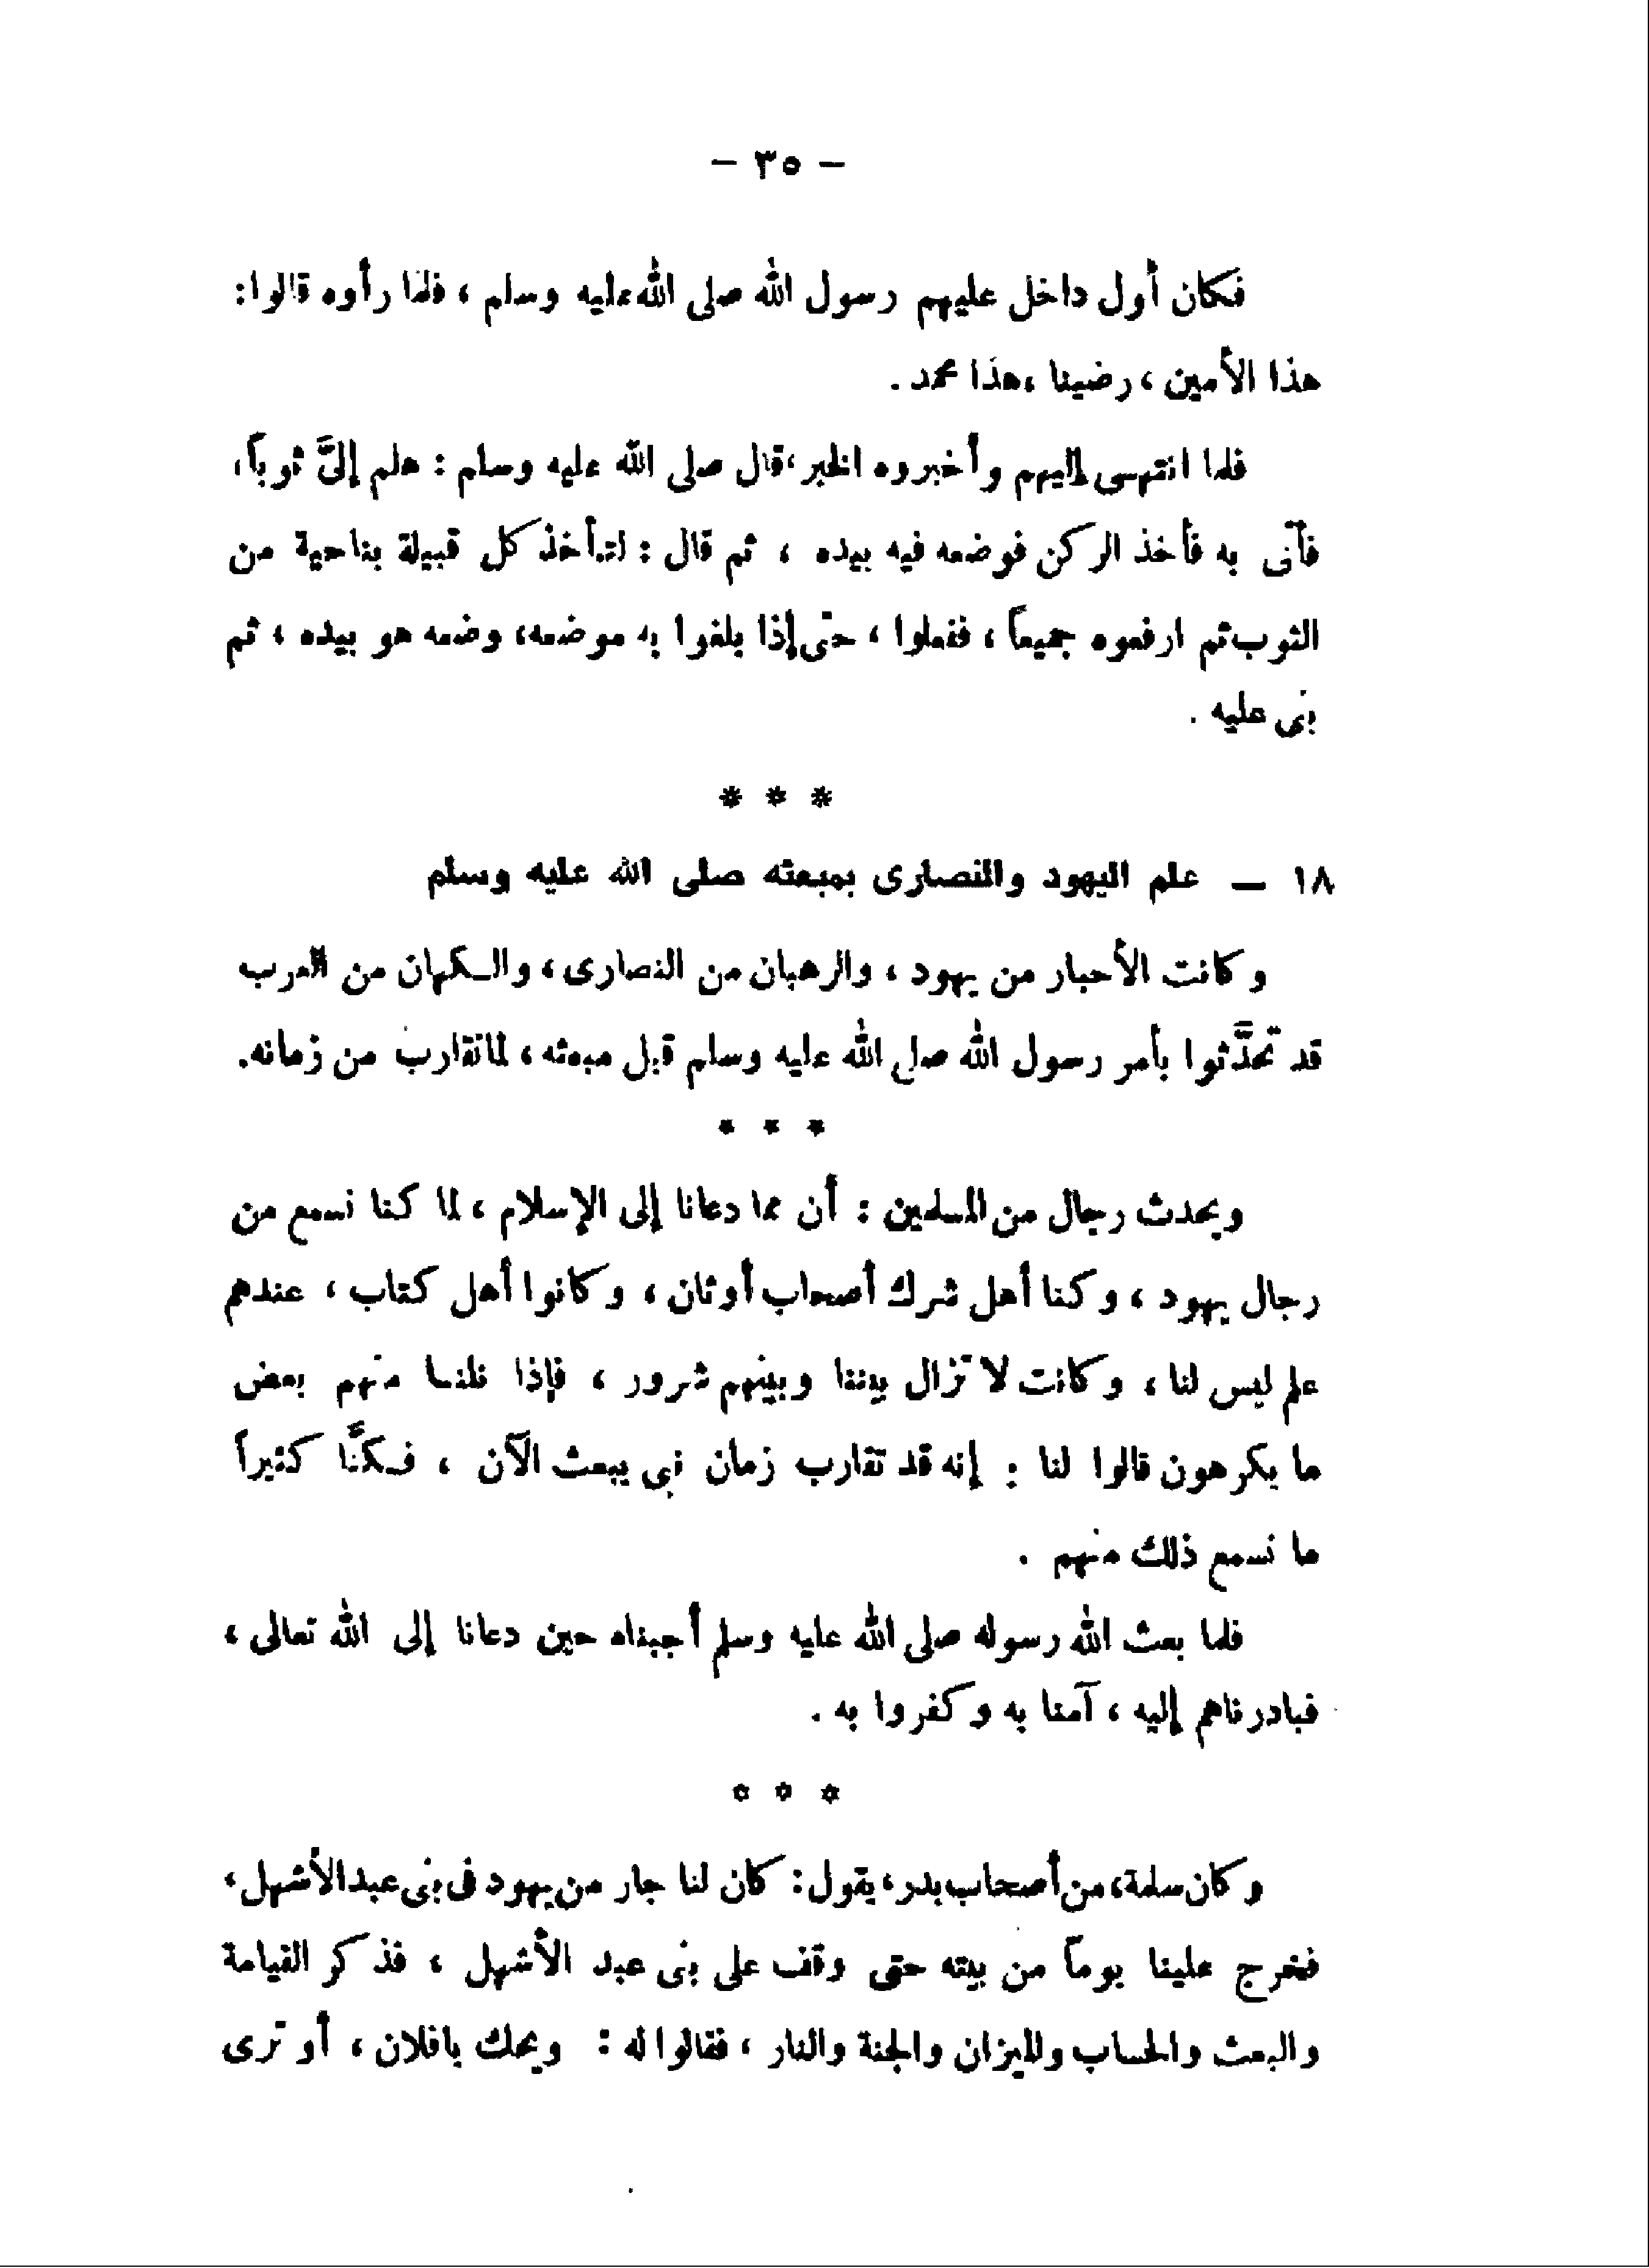 – ٣٥ –
فكان أول داخل عليهم رسول الله صلى الله عليه وسلم ، فلما رأوه قالوا:
هذا الأمين ، رضينا ، هذا محمد .
فلما انتهى إليهم وأخبروه الخبر ، قال صلى الله عليه وسلم : هلم إلىَّ ثوباً ،
فأتى به فأخذ الركن فوضعه فيه بيده ، ثم قال : لتأخذ كل قبيلة بناحية من
الثوب ثم ارفعوه جميعاً ، ففعلوا ، حتى إذا بلغوا به موضعه، وضعه هو بيده ، ثم
بنى عليه .
* * *
١٨ – علم اليهود والنصارى بمبعثه صلى الله عليه وسلم
وكانت الأحبار من يهود ، والرهبان من النصارى ، والكهان من العرب
قد تحدَّثوا بأمر رسول الله صلى الله عليه وسلم قبل مبعثه ، لما تقارب من زمانه.
* * *
ويحدث رجال من المسلمين : أن مما دعانا إلى الإسلام ، لما كنا نسمع من
رجال يهود ، وكنا أهل شرك أصحاب أوثان ، وكانوا أهل كتاب ، عندهم
علم ليس لنا ، وكانت لا تزال بيننا وبينهم شرور ، فإذا نلنا منهم بعض
ما يكرهون قالوا لنا : إنه قد تقارب زمان نبى يبعث الآن ، فكنَّا كثيراً
ما نسمع ذلك منهم .
فلما بعث الله رسوله صلى الله عليه وسلم أجبناه حين دعانا إلى الله تعالى ،
فبادرناهم إليه ، آمنا به وكفروا به .
* * *
وكان سلمة، من أصحاب بدر ، يقول : كان لنا جار من يهود فى بنى عبد الأشهل ،
فخرج علينا يوماً من بيته حتى وقف على بنى عبد الأشهل ، فذكر القيامة
والبعث والحساب والميزان والجنة والنار ، فقالوا له : ويحك يافلان ، أو ترى